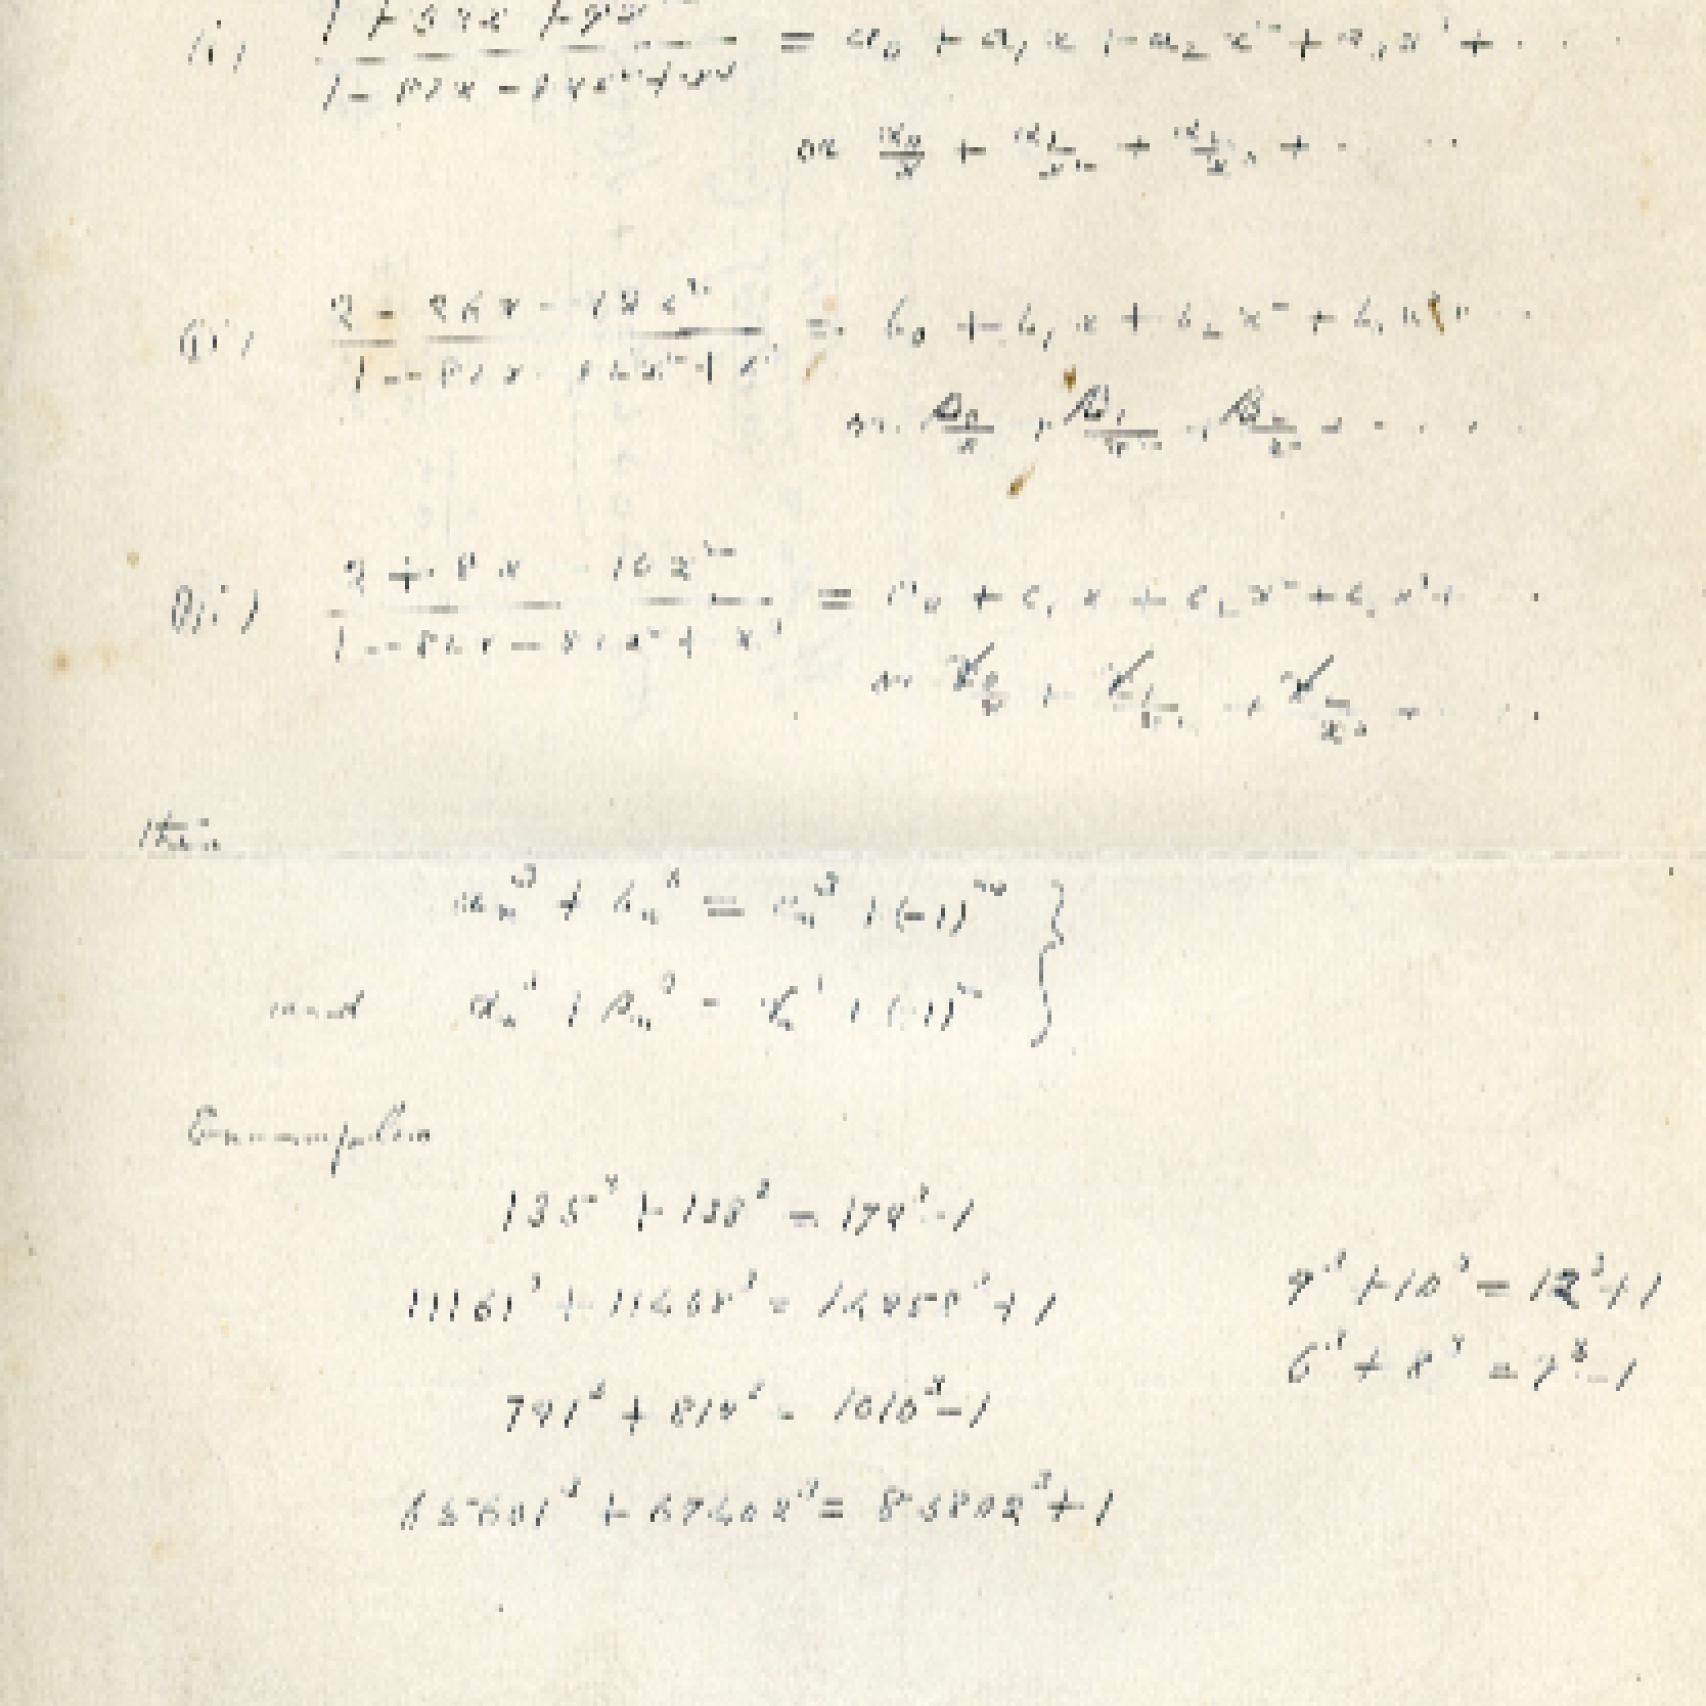 (i) (1 + 53x + 9x²)/(1 - 82x - 82x² + x³) = a₀ + a₁x + a₂x² + a₃x³ + · · ·
or α₀/x + α₁/x² + α₂/x³ + · · ·
(ii) (2 - 26x - 12x²)/(1 - 82x - 82x² + x³) = b₀ + b₁x + b₂x² + b₃x³ · ·
or β₀/x + β₁/x² + β₂/x³ + · · · ·
(iii) (2 + 8x - 10x²)/(1 - 82x - 82x² + x³) = c₀ + c₁x + c₂x² + c₃x³ + ·
or γ₀/x + γ₁/x² + γ₂/x³ + · · ·
then
aₙ³ + bₙ³ = cₙ³ + (-1)ⁿ }
and αₙ³ + βₙ³ = γₙ³ + (-1)ⁿ }
Examples
135³ + 138³ = 172³ - 1
11161³ + 11468³ = 14258³ + 1
9³ + 10³ = 12³ + 1
6³ + 8³ = 9³ - 1
791³ + 812³ = 1010³ - 1
65601³ + 67402³ = 83802³ + 1